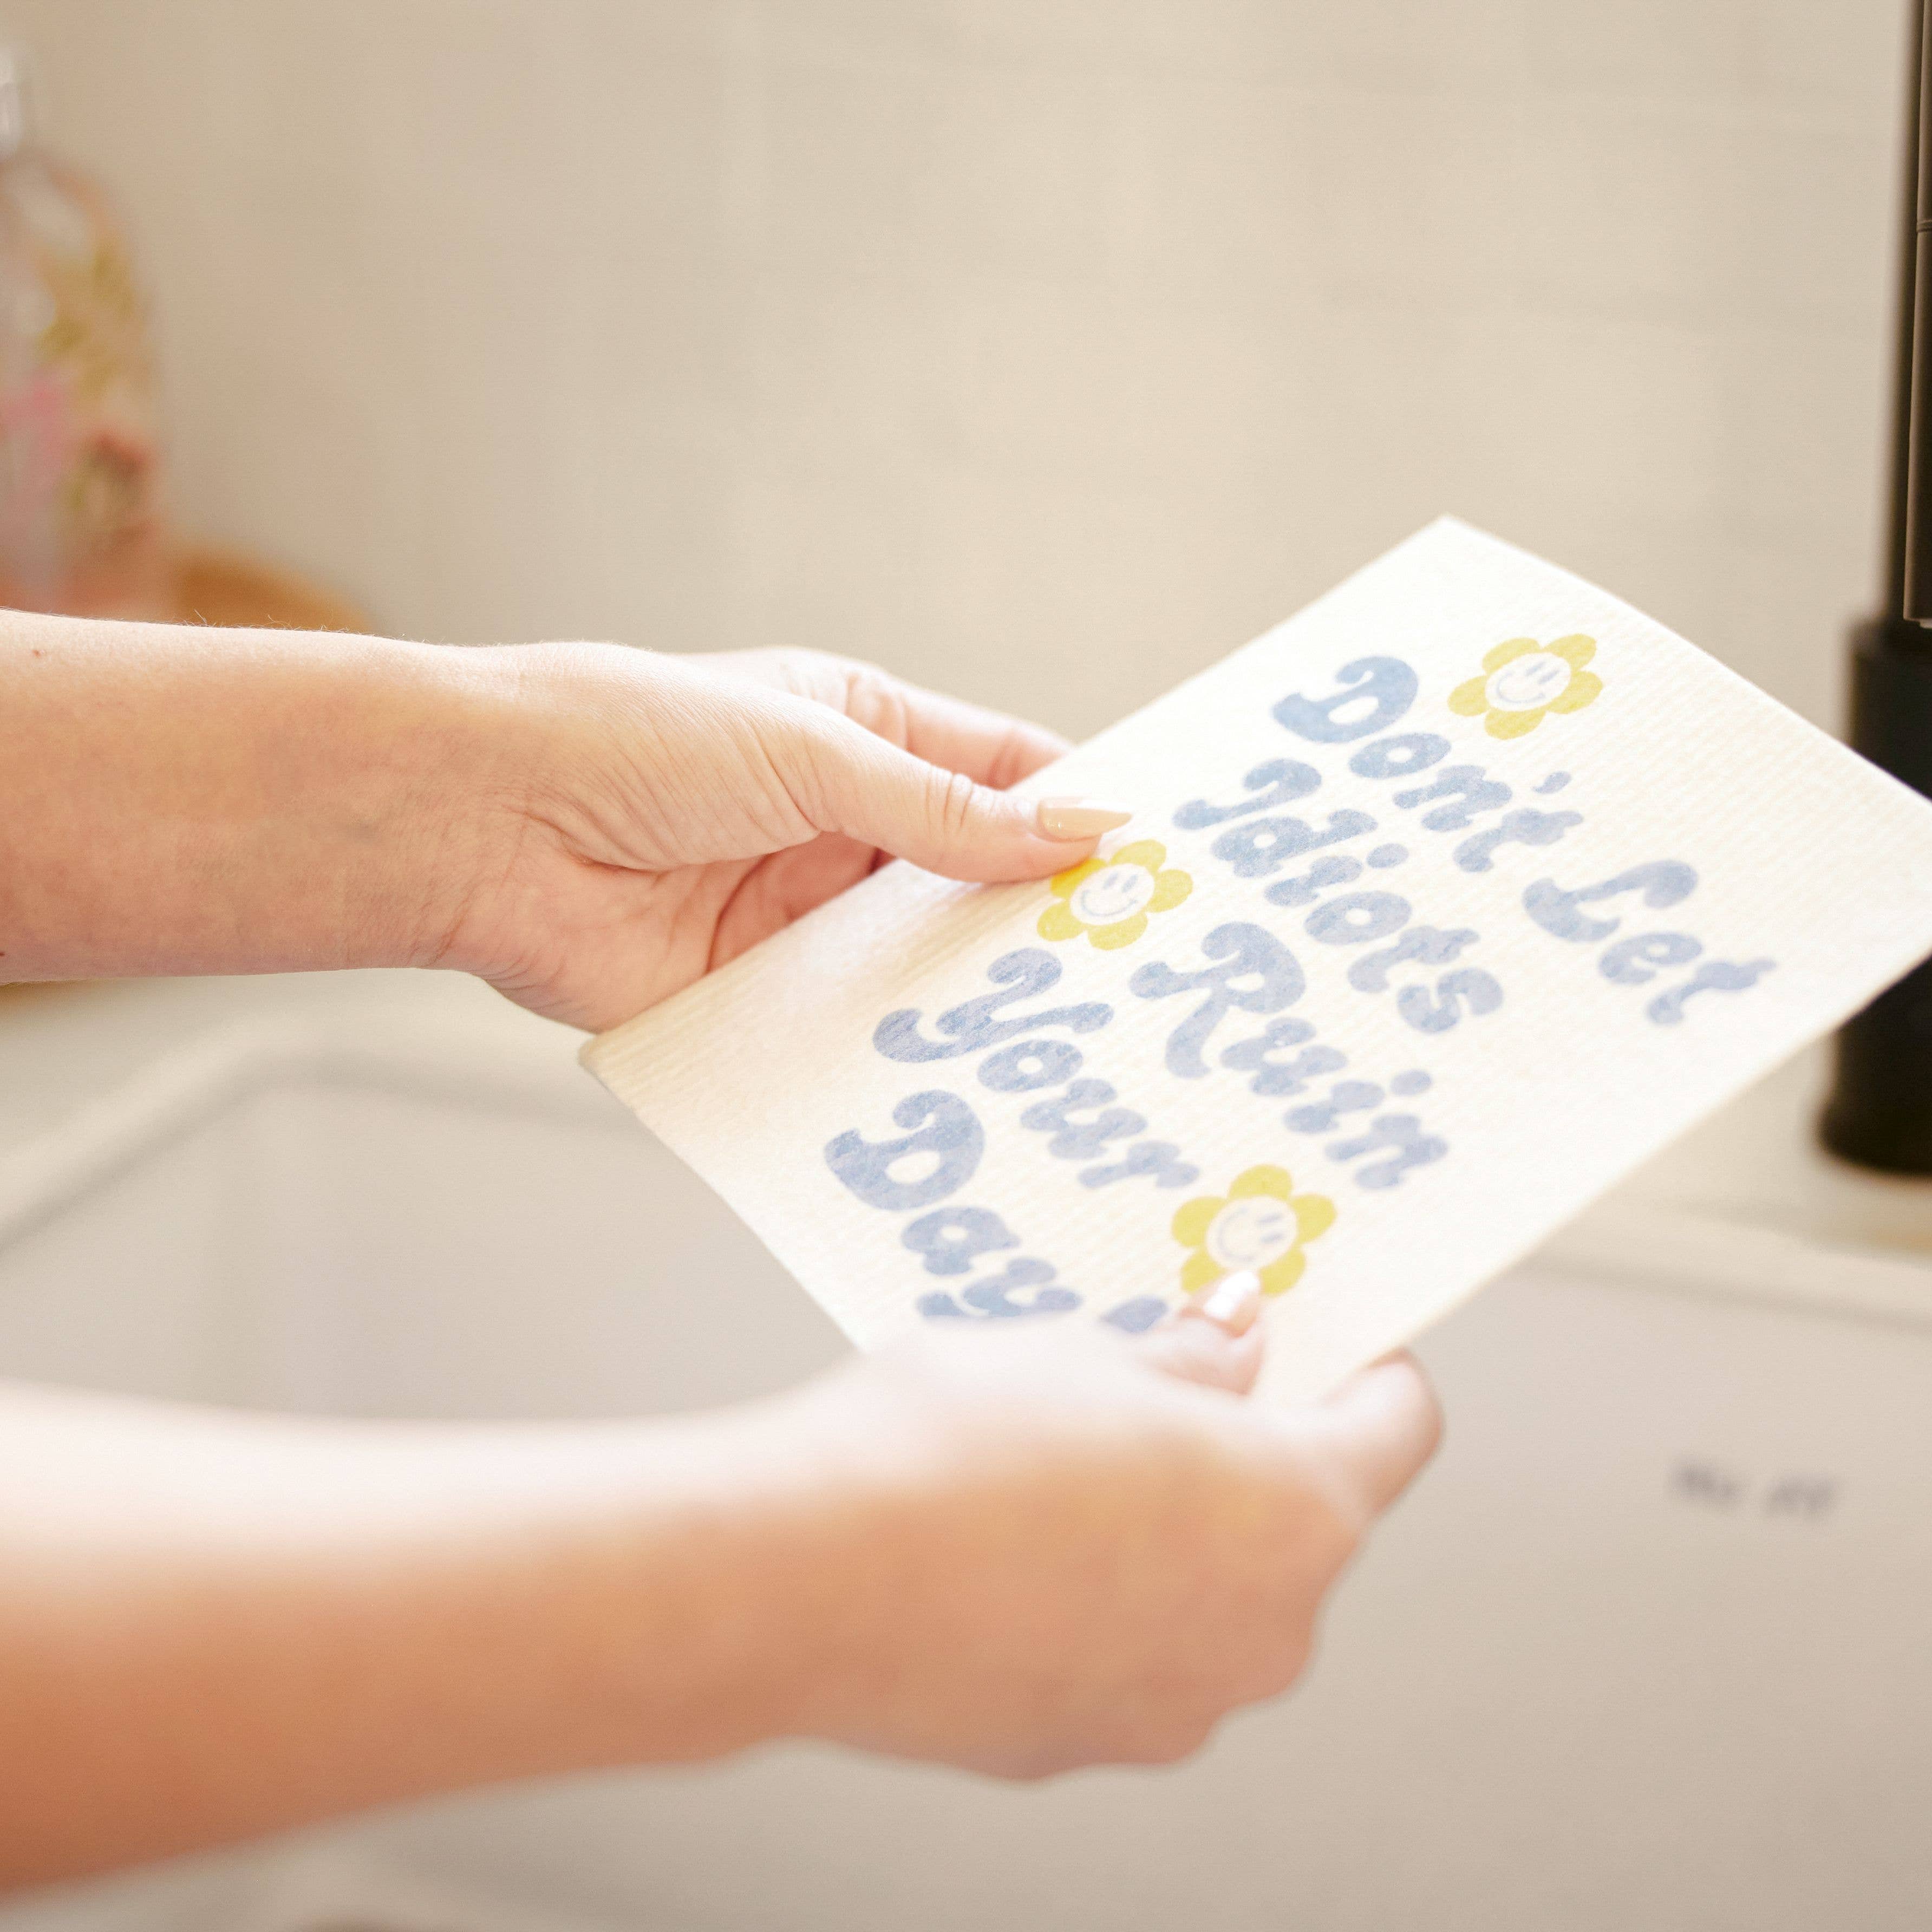 Don't Let
Idiots
Ruin
Your
Day